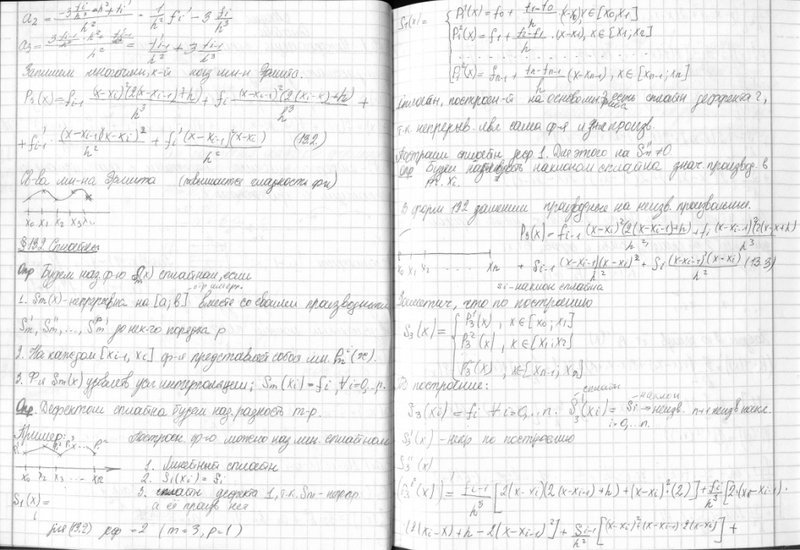 a₂ = (-3 fi/h · h² + fi')/h² = 1/h² fi' - 3 fi/h³
a₃ = = fi-1'/h² + 3 fi-1/h³
Запишем многочлен, к-й наз. мн-н Эрмита.
P₃(x) = fi-1 (x-xi)²(2(x-xi-1)+h)/h³ + fi (x-xi-1)²(2(xi-x)+h)/h³ +
+ fi-1' (x-xi-1)(x-xi)²/h² + fi' (x-xi-1)²(x-xi)/h² (13.2)
Св-ва мн-на Эрмита (повышается гладкость ф-и)
x₀ x₁ x₂ x₃
§ 13.2 Сплайны
Опр Будем наз. ф-ю Sm(x) сплайном, если
1. Sm(x) - непрерывна на [a; в] вместе со своими производными
Sm', Sm'', ..., Sm до нек-го порядка p
2. На каждом [xi-1, xi] ф-я представляет собой мн. Pm(x).
3. Ф-я Sm(x) удовлет. усл. интерполяции; Sm(xi) = fi, ∀i=0,..n.
Опр. Дефектом сплайна будем наз. разность m-p.
Пример: Построен. ф-ю можно наз. лин. сплайном
x₀ x₁ x₂ ... xn
1. Линейный сплайн
2. S₁(xi) = fi
3. сплайн дефекта 1, т.к. Sm - непр.
а её произв нет
S₁(x) =
для (13.2) деф = 2 (m=3, p=1)
S₁(x) = { P₁¹(x) = f₀ + (f₁-f₀)/h · (x-x₀), x∈[x₀, x₁]
P₁²(x) = f₁ + (f₂-f₁)/h · (x-x₁), x∈[x₁, x₂]
. . . . . . . . . .
P₁ⁿ(x) = fn-1 + (fn-fn-1)/h (x-xn-1), x∈[xn-1; xn]
Сплайн, построен-й на основании есть сплайн дефекта 2,
т.к. непрерыв. явл. сама ф-я и произв.
Построим сплайн деф 1. Для этого на Sm'' ≠ 0
Опр Будем наклоном сплайна знач. производ. в
т. xi.
В форм 13.2 заменим производные на неизв. произвольные.
P₃(x) = fi-1 (x-xi)²(2(x-xi-1)+h)/h³ + fi (x-xi-1)²(2(xi-x)+h)/h³
x₀ x₁ x₂ ... xn + Si-1 (x-xi-1)(x-xi)²/h² + Si (x-xi-1)²(x-xi)/h² (13.3)
si - наклон сплайна
Заметим, что по построению
S₃(x) = { P₃¹(x), x∈[x₀; x₁]
P₃²(x), x∈[x₁, x₂]
P₃ⁿ(x), x∈[xn-1; xn]
По построению: сплайн наклон
S₃(xi) = fi ∀i=0,..n. S₃'(xi) = Si → неизв. n+1 неизв накл.
i=0,..n.
S₃'(x) - непр по построению
S₃''(x)
(P₃(x))'' = fi-1/h³ [2(x-xi)(2(x-xi-1)+h) + (x-xi)²·(2)] + fi/h³ [2·(x-xi-1)·
(2(xi-x)+h - 2(x-xi-1)²] + Si-1/h² [(x-xi)² + (x-xi-1)·2(x-xi)] +